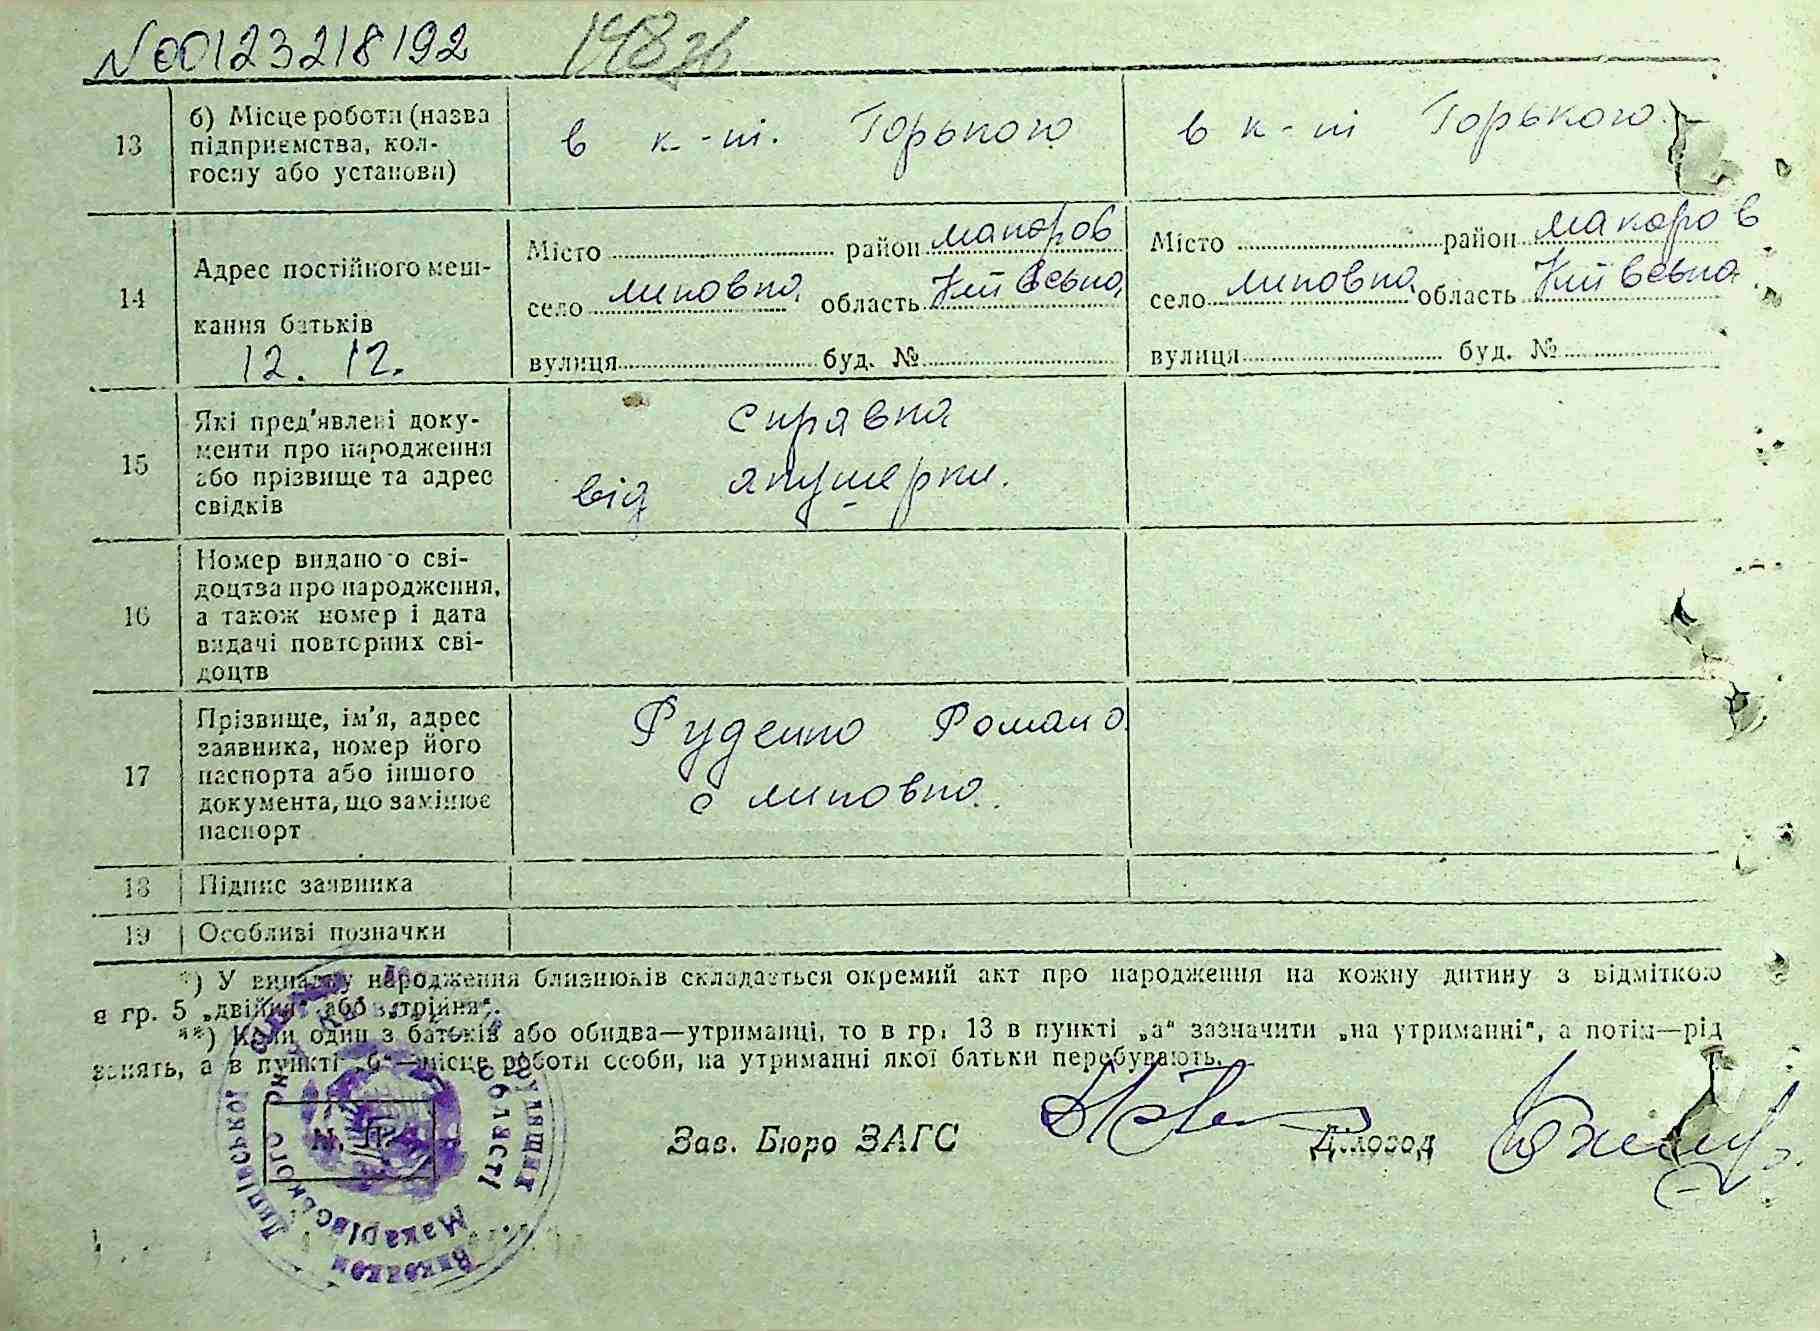 N00123218192 148 зв
13 б) Місце роботи (назва
підприємства, кол-
госпу або установи)
в к-ті. Горького
в к-ті Горького
14 Адрес постійного меш-
кання батьків
12. 12.
Місто район Макаров
село Липовка область Київська
вулиця буд. №
Місто район Макаров
село Липовка область Київська
вулиця буд. №
15 Які пред'явлені доку-
менти про народження
або прізвище та адрес
свідків
справка
від акушерки.
16 Номер видано о сві-
доцтва про народження,
а також номер і дата
видачі повторних сві-
доцтв
17 Прізвище, ім'я, адрес
заявника, номер його
паспорта або іншого
документа, що замінює
паспорт
Руденко Романо
с Липовка.
18 Підпис заявника
19 Особливі позначки
*) У випадку народження близнюків складається окремий акт про народження на кожну дитину з відміткою
в гр. 5 „двійня“ або „трійня“.
**) Коли один з батьків або обидва—утриманці, то в гр. 13 в пункті „а“ зазначити „на утриманні“, а потім—рід
занять, а в пункті „б“—місце роботи особи, на утриманні якої батьки перебувають.
Зав. Бюро ЗАГС Діловод
Макарівського
області